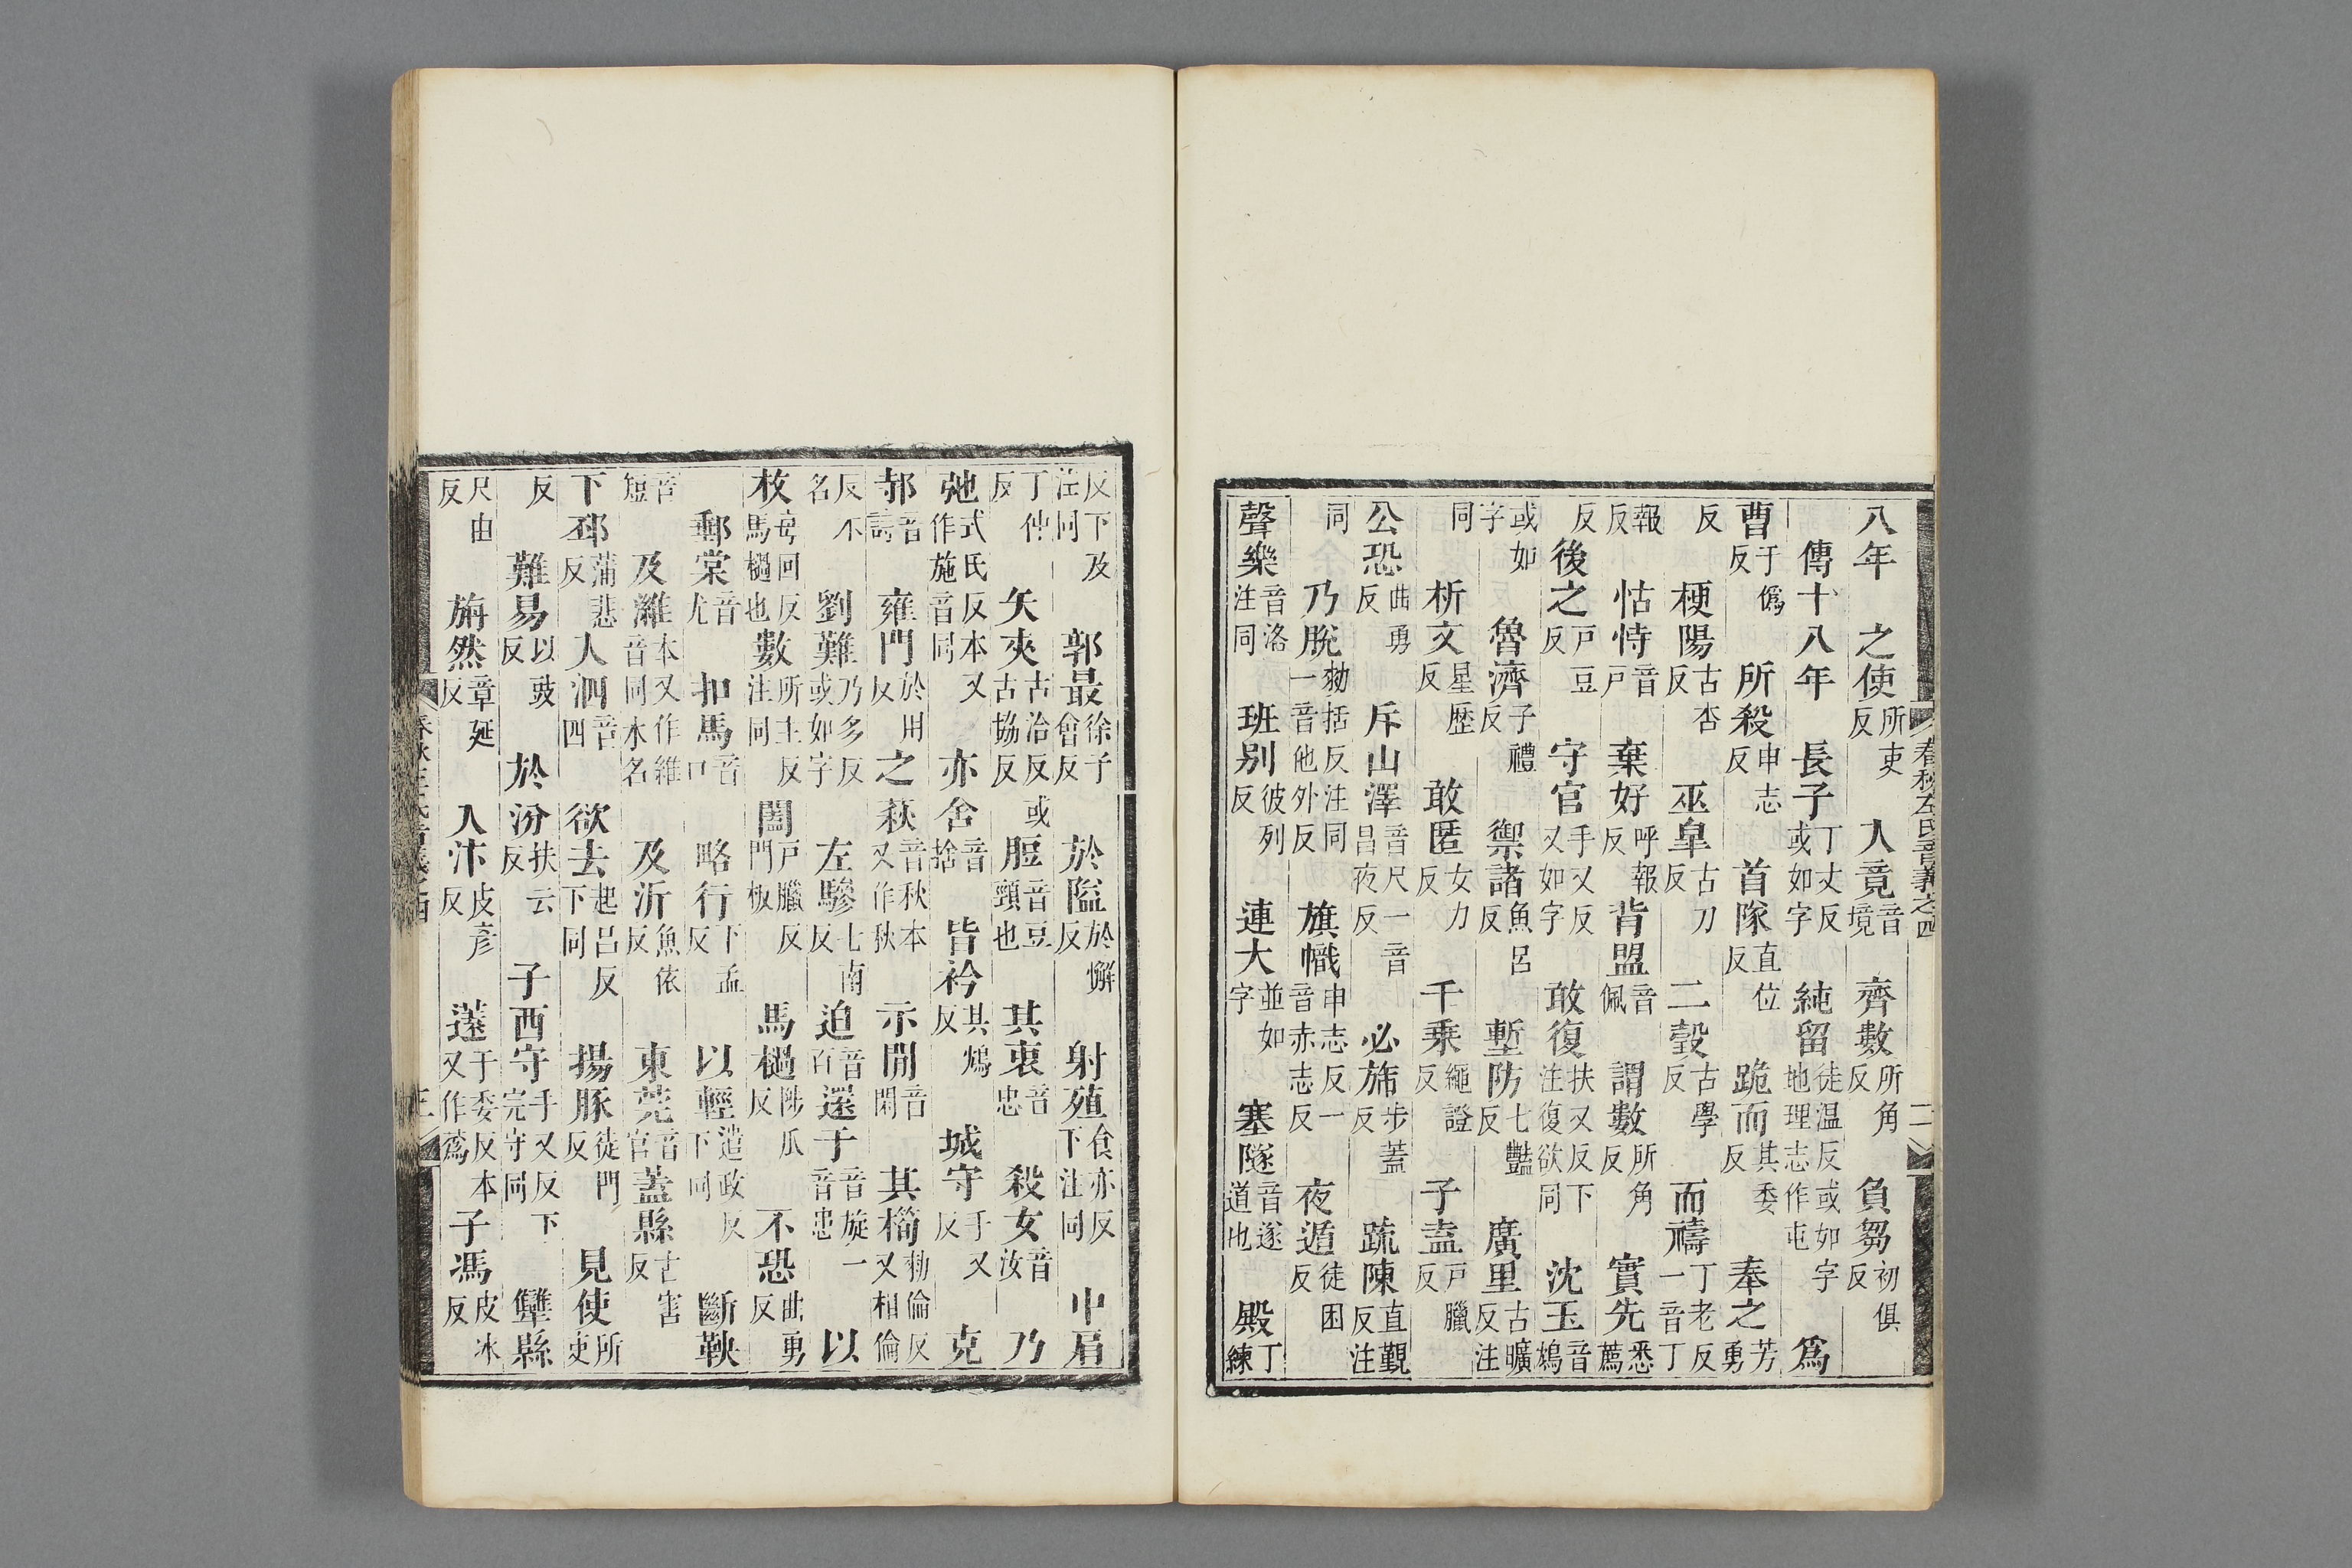 春秋左氏音義之四 二
八年 之使所吏反 入竟音境 齊數所角反 負芻初俱反
傳十八年 長子丁丈反或如字 純留徒温反或如字地理志作屯 爲
曹于僞反 所殺申志反 首隊直位反 跪而其委反 奉之芳勇
反 梗陽古杏反 巫臯古刀反 二瑴古學反 而禱丁老反一音丁
報反 怙恃音戶 棄好呼報反 背盟音佩 謂數所角反 實先悉薦
反 後之戶豆反 守官手又反又如字 敢復扶又反下注復欲同 沈玉音鴆
或如字 魯濟子禮反 禦諸魚呂反 塹防七豔反 廣里古曠反注
同 析文星歷反 敢匿女力反 千乘繩證反 子盍戶臘反
公恐曲勇反 斥山澤音尺一音昌夜反 必斾步蓋反 疏陳直覲反注
同 乃脫勑括反注同一音他外反 旗幟申志反一音赤志反 夜遁徒困反
聲樂音洛注同 班别彼列反 連大並如字 塞隧音遂道也 殿丁練
反下及注同 郭最徐子會反 於隘於懈反 射殖食亦反下注同 中肩
丁仲反 矢夾古洽反或古協反 脰音豆頸也 其衷音忠 殺女音汝 乃
弛式氏反本又作施音同 亦舍音捨 皆衿其鴆反 城守手又反 克
邿音詩 雍門於用反 之萩音秋本又作秋 示閒音閑 其橁勑倫反又相倫
反不名 劉難乃多反或如字 左驂七南反 迫音百 還于音旋一音患 以
枚每回反馬檛也 數所主反注同 闔戶臘反門板 馬檛陟瓜反 不恐曲勇反
郵棠音尤 扣馬音口 略行下孟反 以輕遣政反下同 斷鞅
音短 及濰本又作維音同水名 及沂魚依反 東莞音官 蓋縣古害反
下邳蒲悲反 入泗音四 欲去起呂反下同 揚豚徒門反 見使所吏
反 難易以豉反 於汾扶云反 子西守手又反下完守同 犫縣
尺由反 旃然章延反 入汴皮彥反 薳于委反本又作蒍 子馮皮冰反
春秋左氏音義之四 三